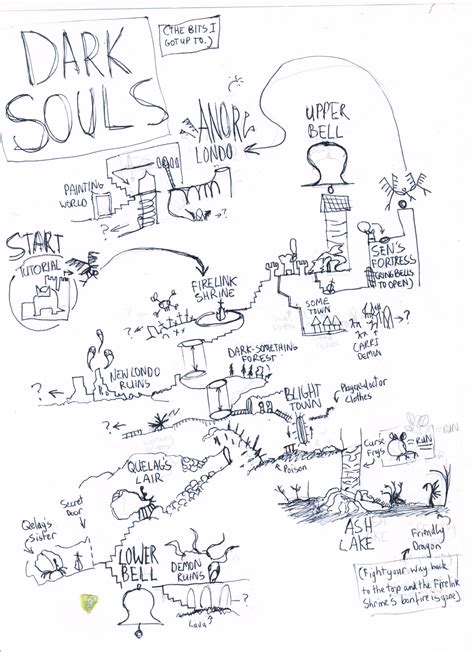 DARK
SOULS
(THE BITS I
GOT UP TO.)
ANORL
LONDO
UPPER
BELL
PAINTING
WORLD
?
?
START
TUTORIAL
SEN'S
FORTRESS
(RING BELLS
TO OPEN)
FIRELINK
SHRINE
SOME
TOWN
?
CAPRI
DEMON
DARK-SOMETHING
FOREST
NEW LONDO
RUINS
?
?
BLIGHT
TOWN
Plague doctor
Clothes
= RUN
Curse
Frogs
= RUN
?
Poison
QUELAG'S
LAIR
Secret
Door
Qelag's
Sister
ASH
LAKE
Friendly
Dragon
LOWER
BELL
DEMON
RUINS
?
Lava
(Fight your way back
to the top and the Firelink
Shrine's bonfire is gone)